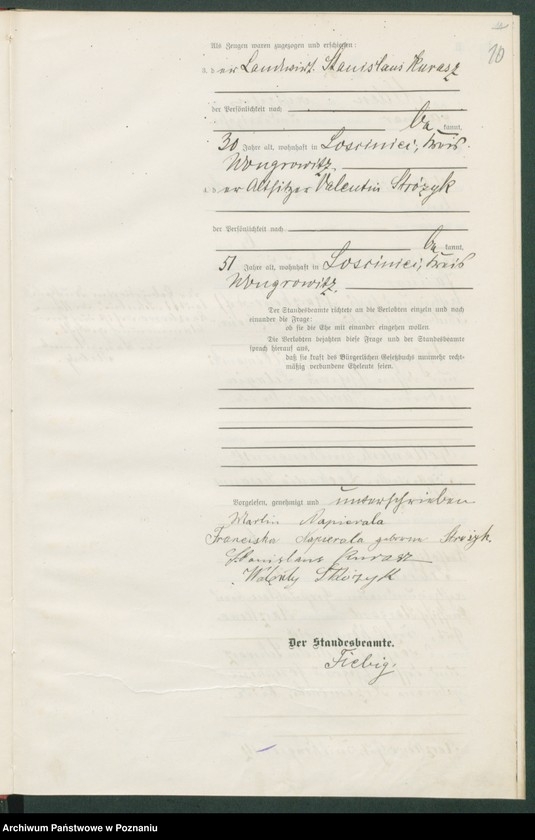 10
Als Zeugen waren zugezogen und erschienen:
3. der Landwirt Stanislaus Kurasz
der Persönlichkeit nach
bekannt,
30 Jahre alt, wohnhaft in Losciniec, Kreis
Wongrowitz.
4. der Altsitzer Valentin Strózyk
der Persönlichkeit nach
bekannt,
51 Jahre alt, wohnhaft in Losciniec, Kreis
Wongrowitz.
Der Standesbeamte richtete an die Verlobten einzeln und nach
einander die Frage:
ob sie die Ehe mit einander eingehen wollen.
Die Verlobten bejahten diese Frage und der Standesbeamte
sprach hierauf aus,
daß sie kraft des Bürgerlichen Gesetzbuchs nunmehr recht-
mäßig verbundene Eheleute seien.
Vorgelesen, genehmigt und unterschrieben
Martin Napierala
Franciska Napierala geboren Strózyk.
Stanislaus Kurasz
Walenty Strózyk
Der Standesbeamte.
Fiebig.
Archiwum Państwowe w Poznaniu